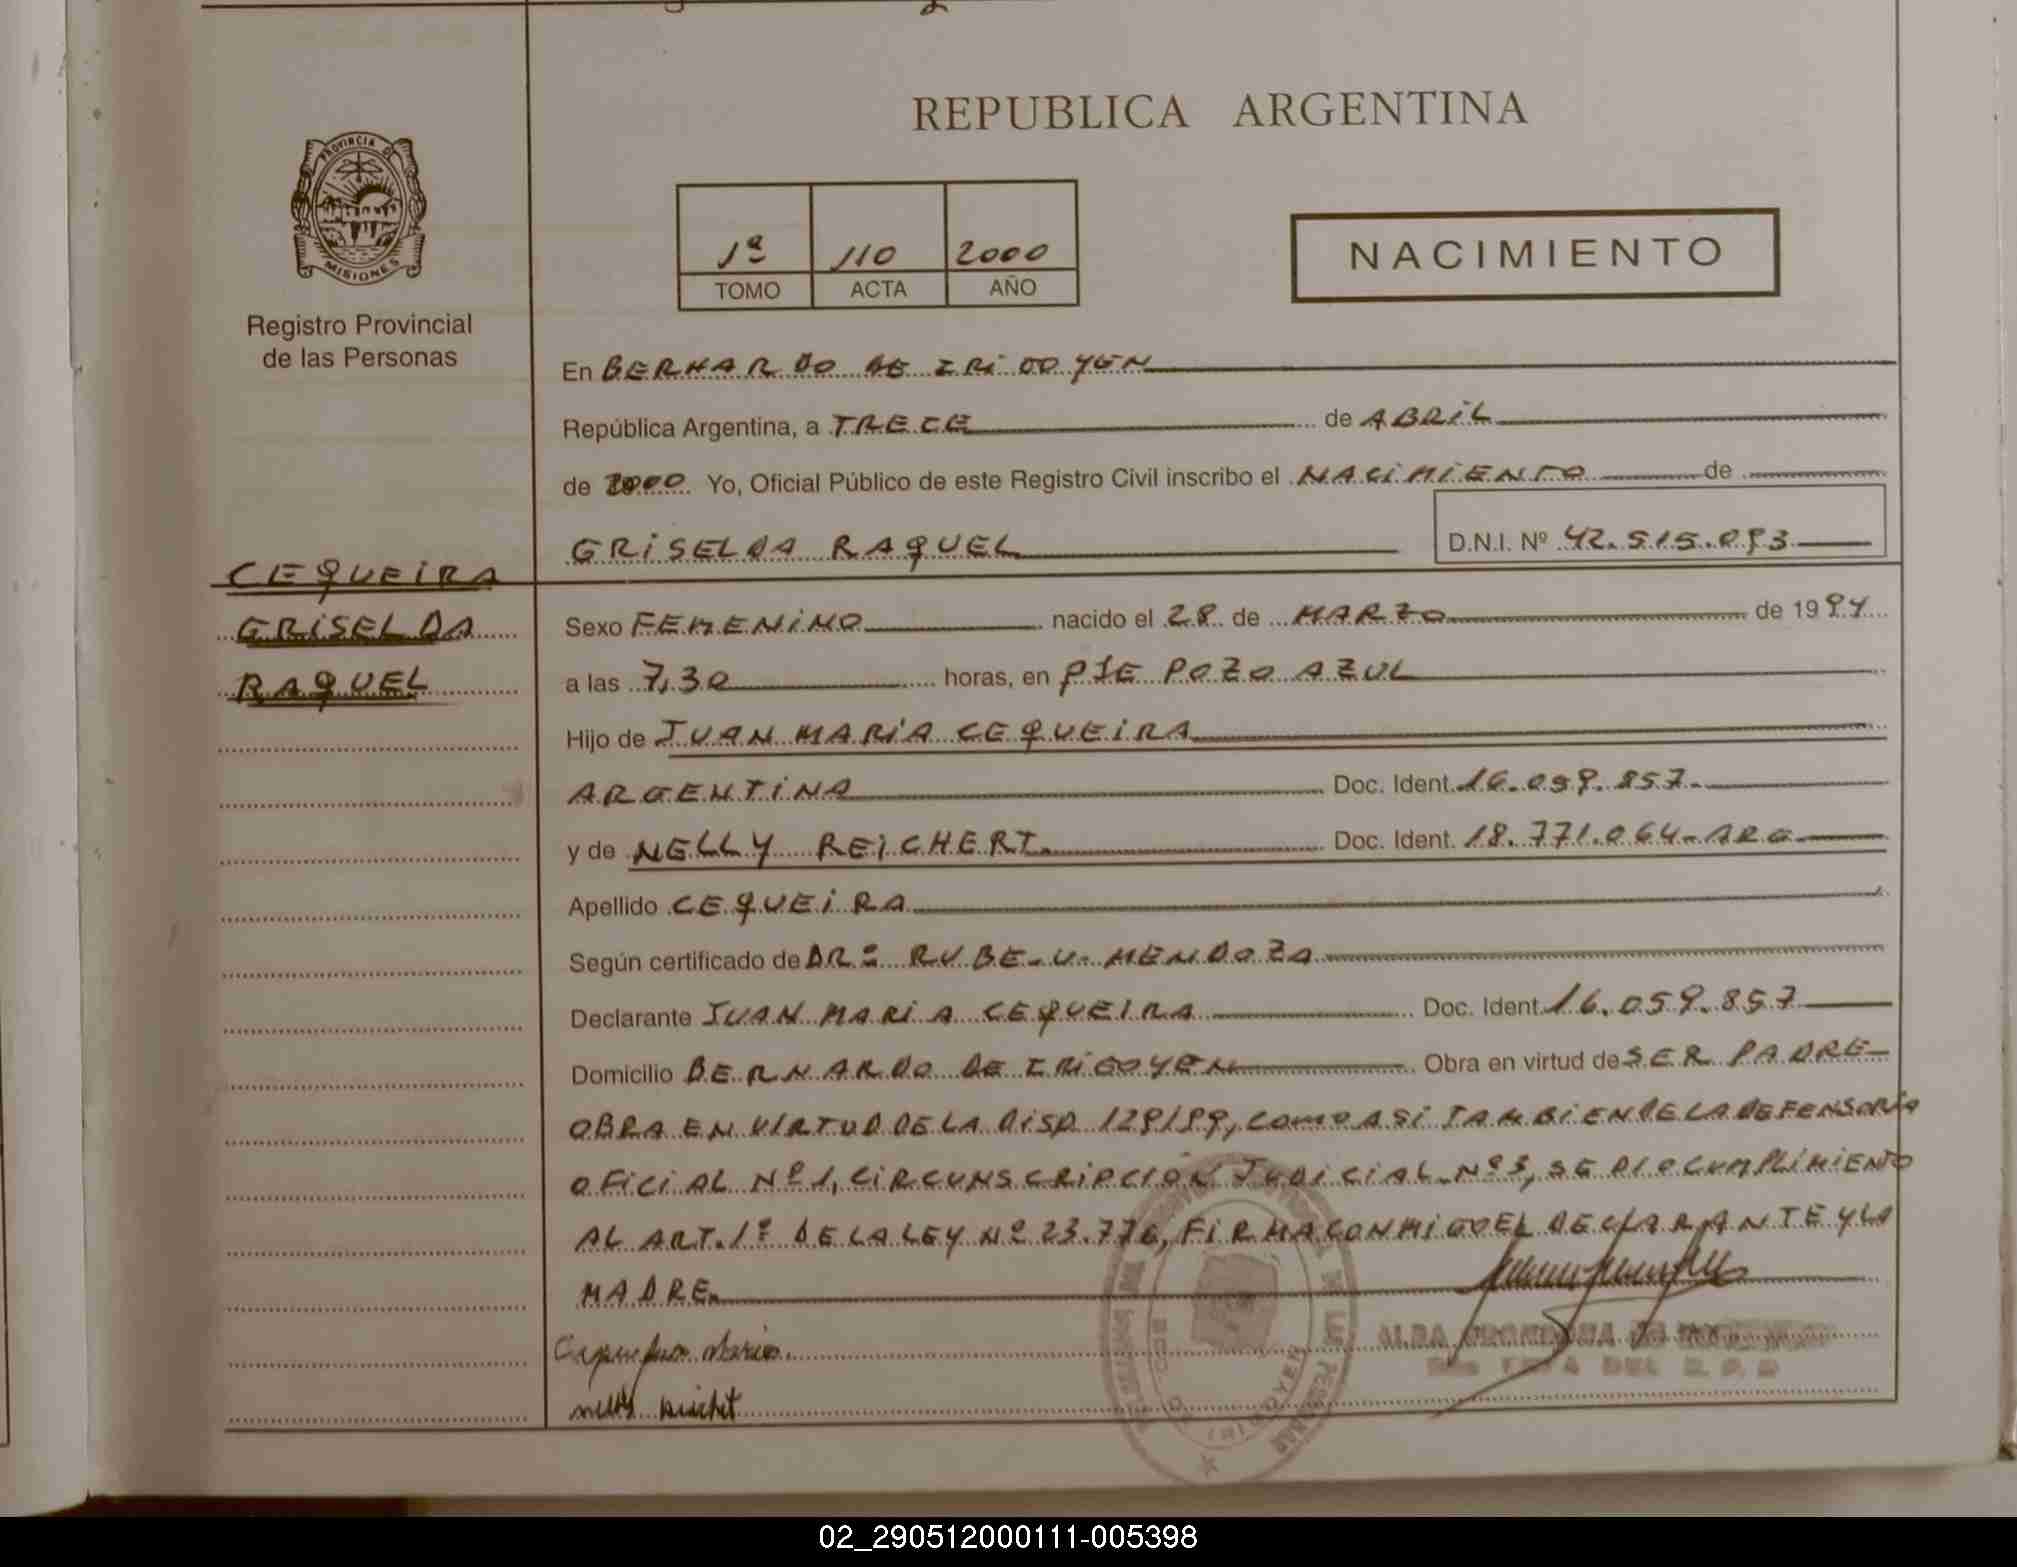 REPUBLICA ARGENTINA
PROVINCIA DE
MISIONES
Registro Provincial
de las Personas
1ª 110 2000
TOMO ACTA AÑO
NACIMIENTO
En BERNARDO DE IRIGOYEN
República Argentina, a TRECE de ABRIL
de 2000 Yo, Oficial Público de este Registro Civil inscribo el NACIMIENTO de
GRISELDA RAQUEL D.N.I. Nº 42.515.093
CEQUEIRA
GRISELDA
RAQUEL
Sexo FEMENINO nacido el 28 de MARZO de 1994
a las 7,30 horas, en PJE POZO AZUL
Hijo de JUAN MARIA CEQUEIRA
ARGENTINA Doc. Ident. 16.059.857.
y de NELLY REICHERT. Doc. Ident. 18.771.064-ARG
Apellido CEQUEIRA
Según certificado de DRº RUBE-U-MENDOZA
Declarante JUAN MARIA CEQUEIRA Doc. Ident. 16.059.857
Domicilio BERNARDO DE IRIGOYEN Obra en virtud de SER PADRE
OBRA EN VIRTUD DE LA DISP. 129/99, COMO ASI TAMBIEN DE LA DEFENSORIA
OFICIAL Nº1, CIRCUNSCRIPCIÓN JUDICIAL Nº3, SE DIO CUMPLIMIENTO
AL ART. 1º DE LA LEY Nº 23.776, FIRMA CONMIGO EL DECLARANTE Y LA
MADRE
02_290512000111-005398